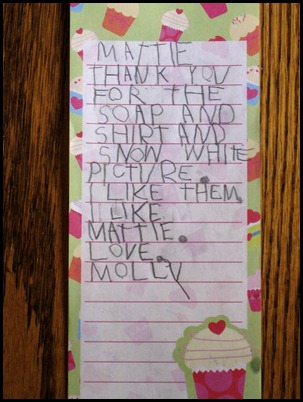 MATTIE
THANK YOU
FOR THE
SOAP AND
SHIRT AND
SNOW WHITE
PICTURE.
I LIKE THEM.
I LIKE
MATTIE.
LOVE.
MOLLY